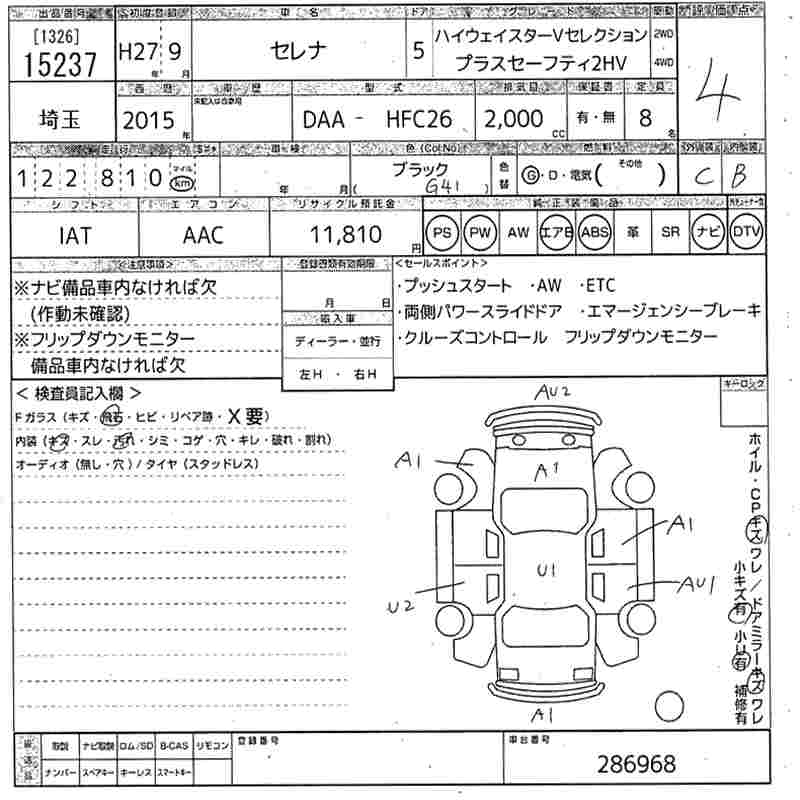 出品番号 初度登録 車名 ドア グレード 駆動 評価点
[1326]
15237
H27 年 9 月
セレナ
5
ハイウェイスターVセレクション
プラスセーフティ2HV
2WD
4WD
4
埼玉
西暦 車歴 型式 排気量 保証書 定員
未記入は自家用
2015 年
DAA - HFC26
2,000 CC
有・無
8 名
走行 車検 色(Col No) 燃料 外装 内装
122810 マイル km
年 月
ブラック
( G41 )
色替
G・D・電気( その他 )
C B
シフト エアコン リサイクル預託金 純正装備品
IAT AAC 11,810 円
PS PW AW エアB ABS 革 SR ナビ DTV
<注意事項>
※ナビ備品車内なければ欠
(作動未確認)
※フリップダウンモニター
備品車内なければ欠
登録書類有効期限
月 日
輸入車
ディーラー・並行
左H・右H
<セールスポイント>
・プッシュスタート ・AW ・ETC
・両側パワースライドドア ・エマージェンシーブレーキ
・クルーズコントロール フリップダウンモニター
< 検査員記入欄 >
Fガラス(キズ・飛石・ヒビ・リペア跡・X要)
内装(キズ・スレ・汚れ・シミ・コゲ・穴・キレ・破れ・割れ)
オーディオ(無し・穴)/タイヤ(スタッドレス)
キーロック
AU2
A1
A1
A1
U1
AU1
U2
A1
ホイル・CPキズワレ/ドアミラーキズワレ
小キズ有 小U有 補修有
取説 ナビ取説 ロム/SD B-CAS リモコン
ナンバー スペアキー キーレス スマートキー
登録番号
車台番号
286968